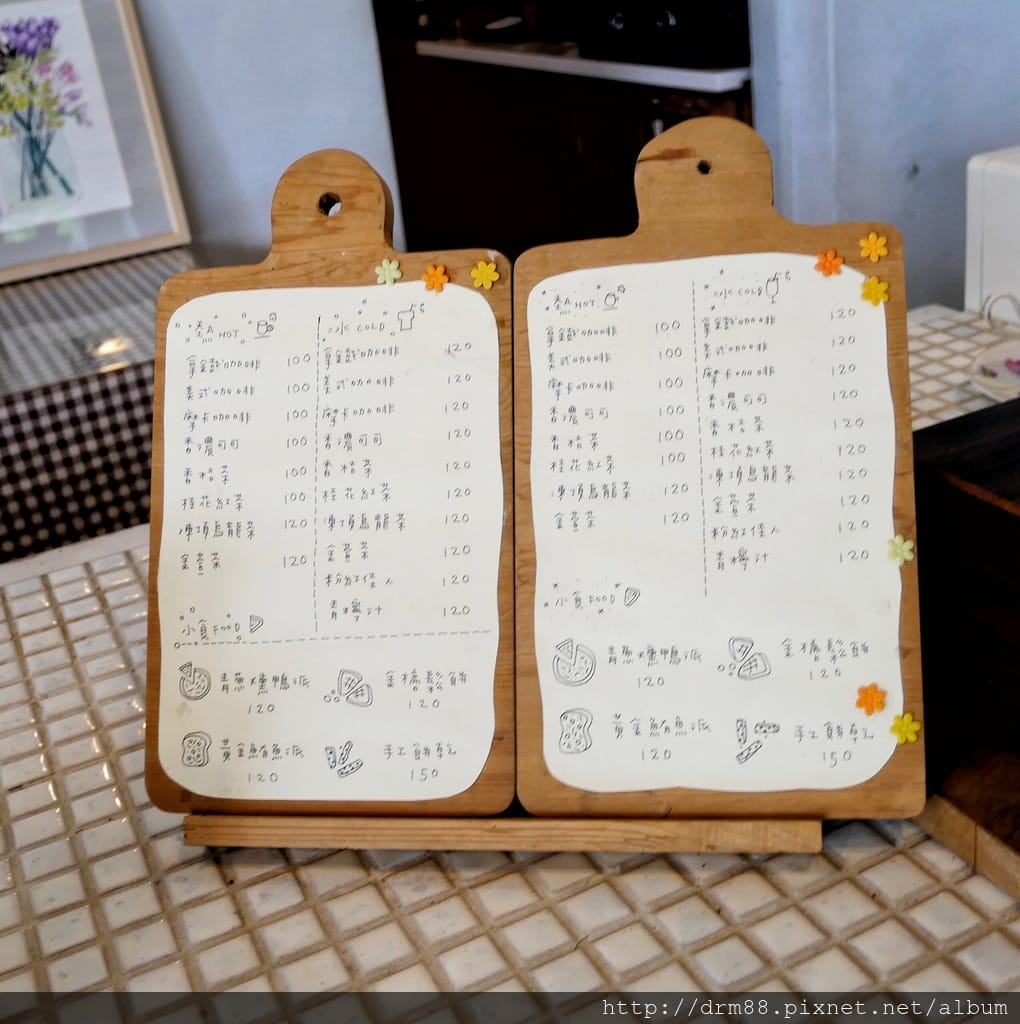 熱 HOT
拿鐵咖啡 100
美式咖啡 100
摩卡咖啡 100
香濃可可 100
香桔茶 100
桂花紅茶 100
凍頂烏龍茶 120
金萱茶 120
冰 COLD
拿鐵咖啡 120
美式咖啡 120
摩卡咖啡 120
香濃可可 120
香桔茶 120
桂花紅茶 120
凍頂烏龍茶 120
金萱茶 120
粉紅佳人 120
青檸汁 120
小食 FOOD
青蔥燻鴨派
120
金橘鬆餅
120
黃金鮪魚派
120
手工餅乾
150
熱 HOT
拿鐵咖啡 100
美式咖啡 100
摩卡咖啡 100
香濃可可 100
香桔茶 100
桂花紅茶 100
凍頂烏龍茶 120
金萱茶 120
冰 COLD
拿鐵咖啡 120
美式咖啡 120
摩卡咖啡 120
香濃可可 120
香桔茶 120
桂花紅茶 120
凍頂烏龍茶 120
金萱茶 120
粉紅佳人 120
青檸汁 120
小食 FOOD
青蔥燻鴨派
120
金橘鬆餅
120
黃金鮪魚派
120
手工餅乾
150
http://drm88.pixnet.net/album